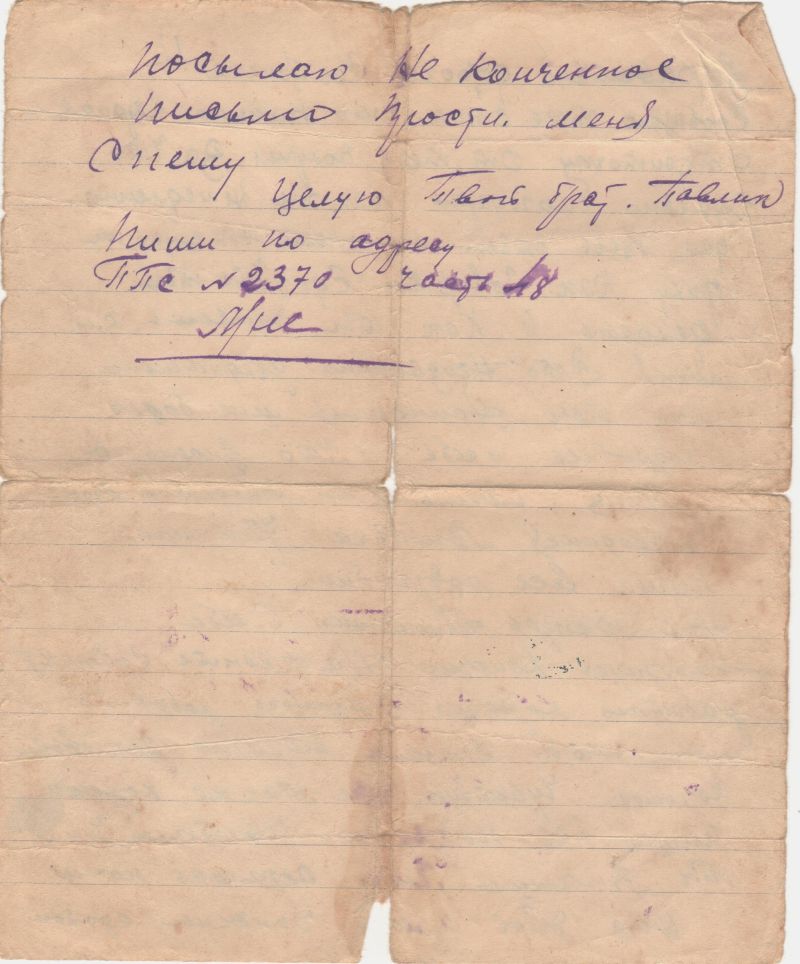 Посылаю Не Конченное
Письмо Прости. меня
Спешу
Целую Твой брат. Павлик
Пиши по адресу
ППС № 2370 часть 18
Мне